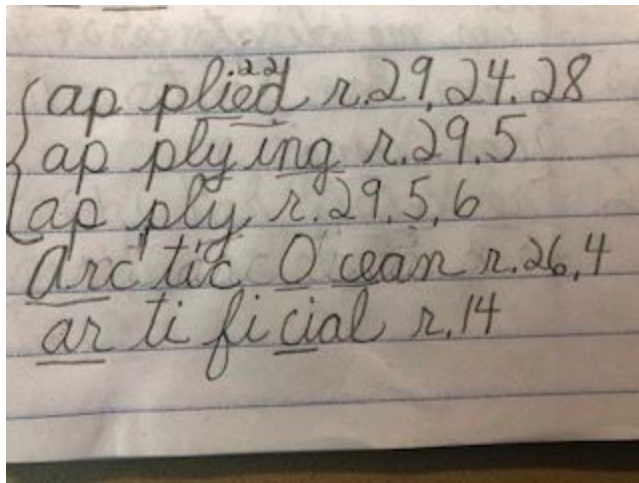 ap plied r.29,24.28
ap ply ing r.29.5
ap ply r.29,5,6
Arc tic O cean r.26,4
ar ti fi cial r.14